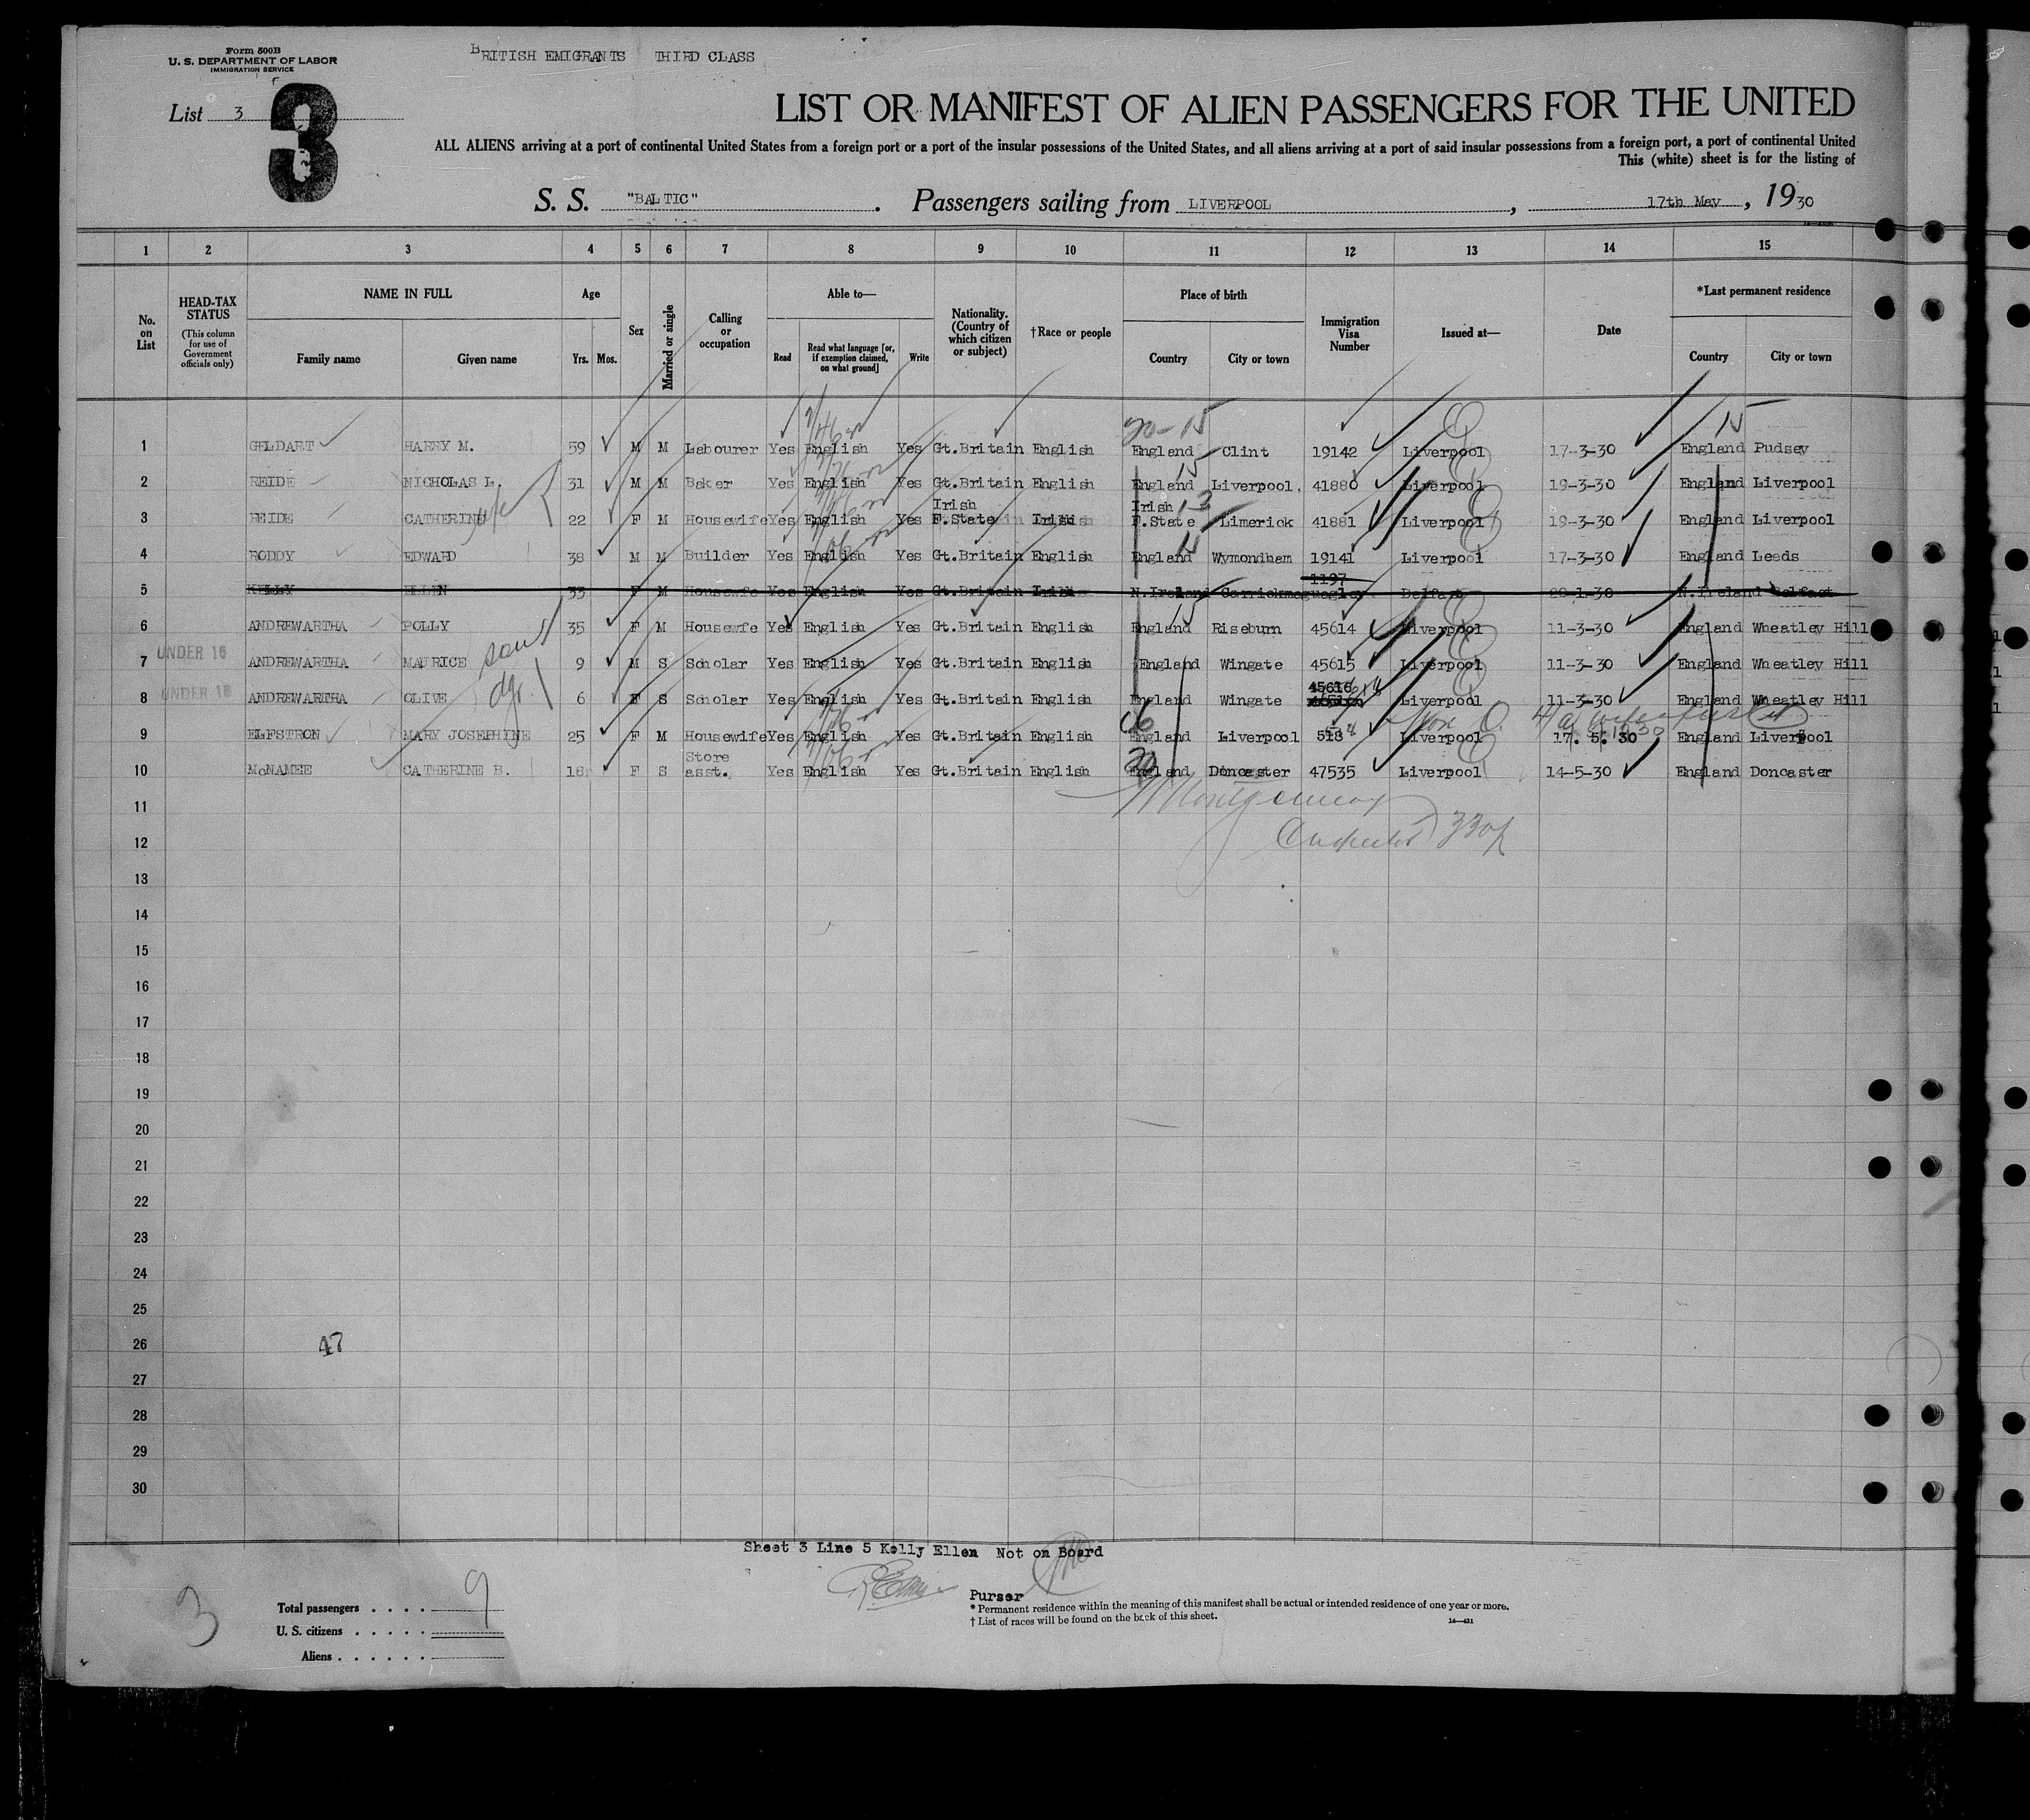 Form 500B
U. S. DEPARTMENT OF LABOR
IMMIGRATION SERVICE
BRITISH EMIGRANTS THIRD CLASS
List 3
3
LIST OR MANIFEST OF ALIEN PASSENGERS FOR THE UNITED
ALL ALIENS arriving at a port of continental United States from a foreign port or a port of the insular possessions of the United States, and all aliens arriving at a port of said insular possessions from a foreign port, a port of continental United
This (white) sheet is for the listing of
S. S. "BALTIC". Passengers sailing from LIVERPOOL, 17th May, 1930
1 2 3 4 5 6 7 8 9 10 11 12 13 14 15
No. on List
HEAD-TAX STATUS
(This column for use of Government officials only)
NAME IN FULL
Family name Given name
Age
Yrs. Mos.
Sex
Married or single
Calling or occupation
Able to—
Read
Read what language [or, if exemption claimed, on what ground]
Write
Nationality. (Country of which citizen or subject)
†Race or people
Place of birth
Country City or town
Immigration Visa Number
Issued at—
Date
*Last permanent residence
Country City or town
20-15 15
1 GELDART HARRY M. 59 M M Labourer Yes English Yes Gt.Britain English England Clint 19142 Liverpool 17-3-30 England Pudsey
2 REIDE NICHOLAS L. 31 M M Baker Yes English Yes Gt.Britain English England Liverpool. 41880 Liverpool 19-3-30 England Liverpool
3 REIDE CATHERINE wife 22 F M Housewife Yes English Yes Irish F.State Irish Irish F.State Limerick 41881 Liverpool 19-3-30 England Liverpool
4 RODDY EDWARD 38 M M Builder Yes English Yes Gt.Britain English England Wymondham 19141 Liverpool 17-3-30 England Leeds
1197
5 KELLY ELLEN 33 F M Housewife Yes English Yes Gt.Britain Irish N.Ireland Carrickmaquegley Belfast 28-1-30 N.Ireland Belfast
6 ANDREWARTHA POLLY 35 F M Housewfe Yes English Yes Gt.Britain English England Riseburn 45614 Liverpool 11-3-30 England Wheatley Hill
UNDER 16
7 ANDREWARTHA MAURICE son 9 M S Scholar Yes English Yes Gt.Britain English England Wingate 45615 Liverpool 11-3-30 England Wheatley Hill
UNDER 16
8 ANDREWARTHA OLIVE dgr. 6 F S Scholar Yes English Yes Gt.Britain English England Wingate 45616 Liverpool 11-3-30 England Wheatley Hill
9 ELFSTRON MARY JOSEPHINE 25 F M Housewife Yes English Yes Gt.Britain English England Liverpool 518 Liverpool 17. 5. 30 England Liverpool
10 McNAMEE CATHERINE B. 18 F S Store asst. Yes English Yes Gt.Britain English England Doncaster 47535 Liverpool 14-5-30 England Doncaster
11
Montgomery
12
13
14
15
16
17
18
19
20
21
22
23
24
25
26 47
27
28
29
30
Sheet 3 Line 5 Kelly Ellen Not on Board
Purser
3
Total passengers . . . . 9
U. S. citizens . . . . .
Aliens . . . . . .
* Permanent residence within the meaning of this manifest shall be actual or intended residence of one year or more.
† List of races will be found on the back of this sheet.
14—431